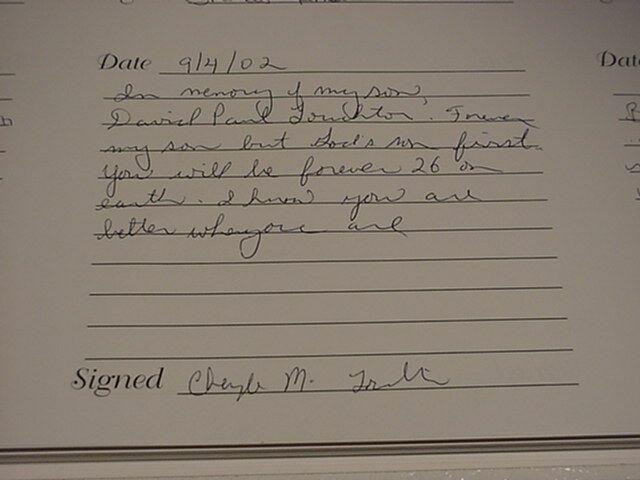 Date 9/4/02 Dat
In memory of my son,
David Paul . Forever
my son but God's son first.
You will be forever 26 on
earth. I know you are
better where you are
Signed Cheryle M.